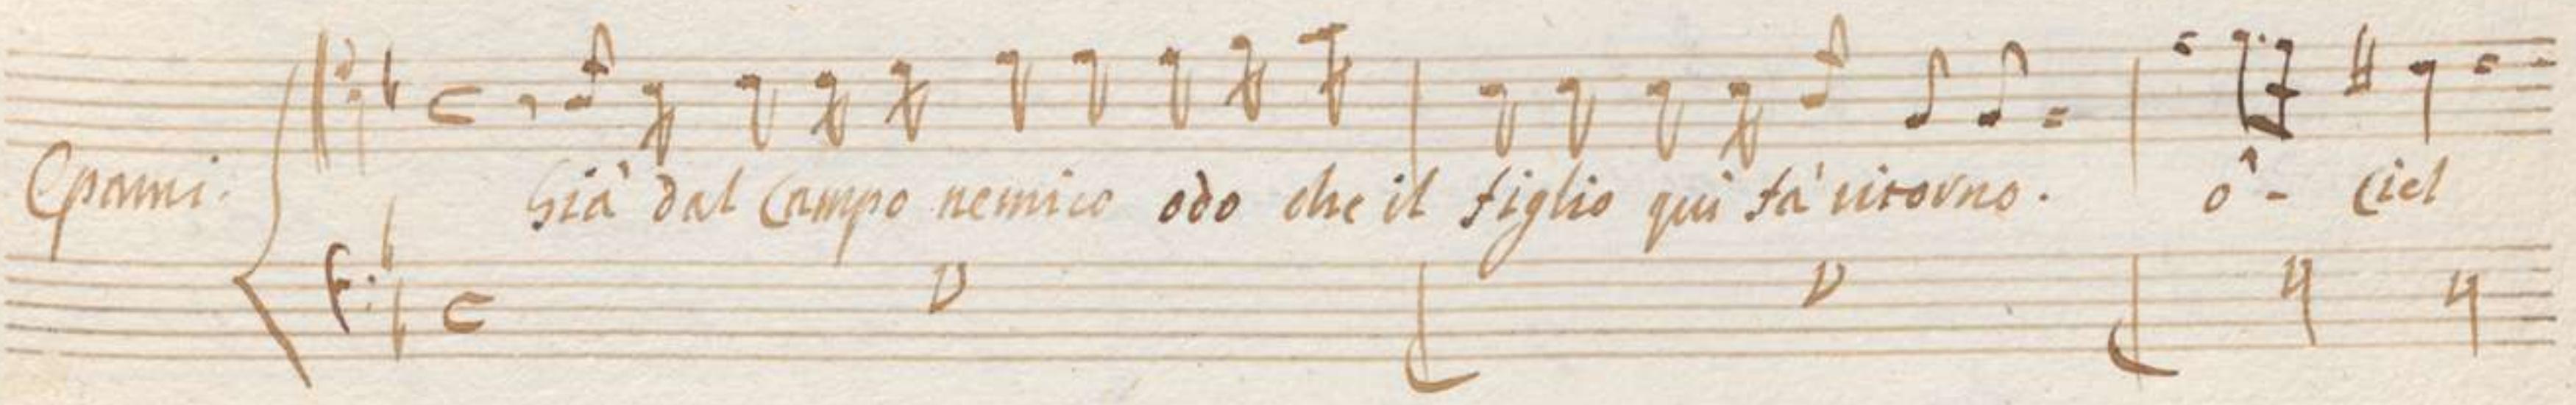 Epami. Già dal Campo nemico odo che il figlio qui fà ritorno. ô - Ciel